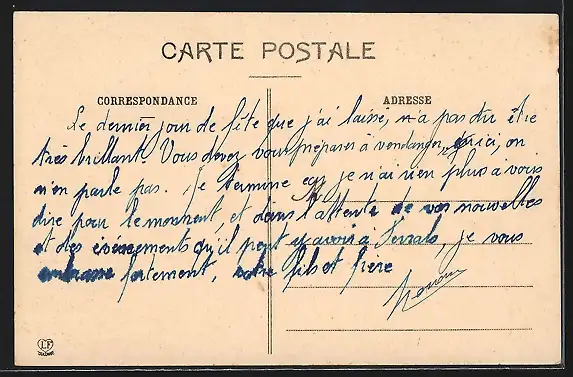 CARTE POSTALE
CORRESPONDANCE
ADRESSE
Le dernier jour de fête que j'ai laissé, n'a pas du être
très brillant. Vous devez vous préparer à vendanger, ici, on
n'en parle pas. Je termine car je n'ai rien plus à vous
dire pour le moment, et dans l'attente de vos nouvelles
et des évènements qu'il peut y avoir à Ferrals, je vous
embrasse fortement, votre fils et frère